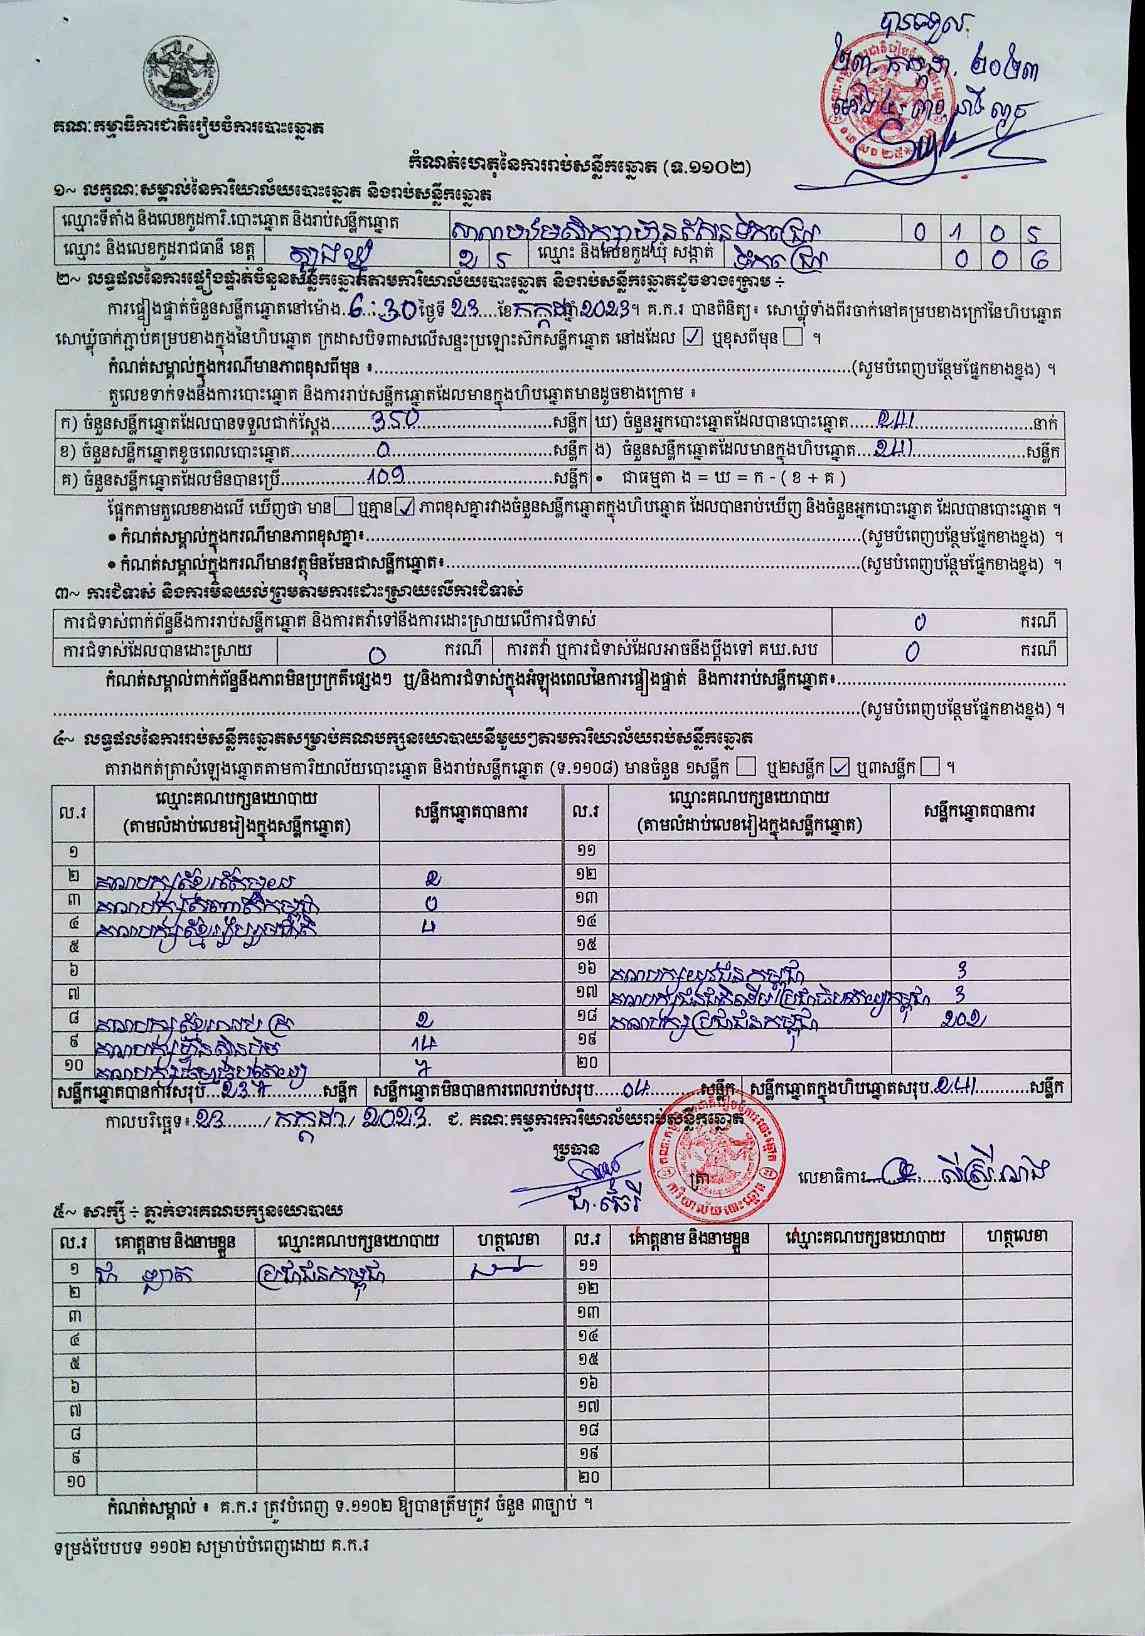 គណៈកម្មាធិការជាតិរៀបចំការបោះឆ្នោត
បានទទួល
២៣ កក្កដា ២០២៣
កំណត់ហេតុនៃការរាប់សន្លឹកឆ្នោត (ទ.១១០២)
១~ លក្ខណៈសម្គាល់នៃការិយាល័យបោះឆ្នោត និងរាប់សន្លឹកឆ្នោត
ឈ្មោះទីតាំង និងលេខកូដការិ.បោះឆ្នោត និងរាប់សន្លឹកឆ្នោត 0 1 0 5
ឈ្មោះ និងលេខកូដរាជធានី ខេត្ត ត្បូងឃ្មុំ 2 5 ឈ្មោះ និងលេខកូដឃុំ សង្កាត់ ទឹកជ្រៅ 0 0 6
២~ លទ្ធផលនៃការផ្ទៀងផ្ទាត់ចំនួនសន្លឹកឆ្នោតតាមការិយាល័យបោះឆ្នោត និងរាប់សន្លឹកឆ្នោតដូចខាងក្រោម ÷
ការផ្ទៀងផ្ទាត់ចំនួនសន្លឹកឆ្នោតនៅម៉ោង 6:30 ថ្ងៃទី 23 ខែកក្កដា ឆ្នាំ 2023។ គ.ក.រ បានពិនិត្យ៖ សោឃ្លុំទាំងពីរចាក់នៅគម្របខាងក្រៅនៃហិបឆ្នោត
សោឃ្លុំចាក់ភ្ជាប់គម្របខាងក្នុងនៃហិបឆ្នោត ក្រដាសបិទពាសលើសន្ទះប្រឡោះស៊កសន្លឹកឆ្នោត នៅដដែល ☑ ឬខុសពីមុន ☐ ។
កំណត់សម្គាល់ក្នុងករណីមានភាពខុសពីមុន ៖ (សូមបំពេញបន្ថែមផ្នែកខាងខ្នង) ។
តួលេខទាក់ទងនឹងការបោះឆ្នោត និងការរាប់សន្លឹកឆ្នោតដែលមានក្នុងហិបឆ្នោតមានដូចខាងក្រោម ៖
ក) ចំនួនសន្លឹកឆ្នោតដែលបានទទួលជាក់ស្តែង 350 សន្លឹក ឃ) ចំនួនអ្នកបោះឆ្នោតដែលបានបោះឆ្នោត 241 នាក់
ខ) ចំនួនសន្លឹកឆ្នោតខូចពេលបោះឆ្នោត 0 សន្លឹក ង) ចំនួនសន្លឹកឆ្នោតដែលមានក្នុងហិបឆ្នោត 241 សន្លឹក
គ) ចំនួនសន្លឹកឆ្នោតដែលមិនបានប្រើ 109 សន្លឹក • ជាធម្មតា ង = ឃ = ក - ( ខ + គ )
ផ្អែកតាមតួលេខខាងលើ ឃើញថា មាន ☐ ឬគ្មាន ☑ ភាពខុសគ្នារវាងចំនួនសន្លឹកឆ្នោតក្នុងហិបឆ្នោត ដែលបានរាប់ឃើញ និងចំនួនអ្នកបោះឆ្នោត ដែលបានបោះឆ្នោត ។
• កំណត់សម្គាល់ក្នុងករណីមានភាពខុសគ្នា៖ (សូមបំពេញបន្ថែមផ្នែកខាងខ្នង) ។
• កំណត់សម្គាល់ក្នុងករណីមានវត្ថុមិនមែនជាសន្លឹកឆ្នោត៖ (សូមបំពេញបន្ថែមផ្នែកខាងខ្នង) ។
៣~ ការជំទាស់ និងការមិនយល់ព្រមតាមការដោះស្រាយលើការជំទាស់
ការជំទាស់ពាក់ព័ន្ធនឹងការរាប់សន្លឹកឆ្នោត និងការតវ៉ាទៅនឹងការដោះស្រាយលើការជំទាស់ 0 ករណី
ការជំទាស់ដែលបានដោះស្រាយ 0 ករណី ការតវ៉ា ឬការជំទាស់ដែលអាចនឹងប្តឹងទៅ គឃ.សប 0 ករណី
កំណត់សម្គាល់ពាក់ព័ន្ធនឹងភាពមិនប្រក្រតីផ្សេងៗ ឬ/និងការជំទាស់ក្នុងអំឡុងពេលនៃការផ្ទៀងផ្ទាត់ និងការរាប់សន្លឹកឆ្នោត៖
(សូមបំពេញបន្ថែមផ្នែកខាងខ្នង) ។
៤~ លទ្ធផលនៃការរាប់សន្លឹកឆ្នោតសម្រាប់គណបក្សនយោបាយនីមួយៗតាមការិយាល័យរាប់សន្លឹកឆ្នោត
តារាងកត់ត្រាសំឡេងឆ្នោតតាមការិយាល័យបោះឆ្នោត និងរាប់សន្លឹកឆ្នោត (ទ.១១០៨) មានចំនួន ១សន្លឹក ☐ ឬ២សន្លឹក ☑ ឬ៣សន្លឹក ☐ ។
ល.រ ឈ្មោះគណបក្សនយោបាយ (តាមលំដាប់លេខរៀងក្នុងសន្លឹកឆ្នោត) សន្លឹកឆ្នោតបានការ ល.រ ឈ្មោះគណបក្សនយោបាយ (តាមលំដាប់លេខរៀងក្នុងសន្លឹកឆ្នោត) សន្លឹកឆ្នោតបានការ
១ ១១
២ 2 ១២
៣ 0 ១៣
៤ គណបក្សខ្មែររួបរួមជាតិ 4 ១៤
៥ ១៥
៦ ១៦ គណបក្សយុវជនកម្ពុជា 3
៧ ១៧ 3
៨ 2 ១៨ គណបក្សប្រជាជនកម្ពុជា 202
៩ គណបក្សហ្វ៊ុនស៊ិនប៉ិច 14 ១៩
១០ 7 ២០
សន្លឹកឆ្នោតបានការសរុប 237 សន្លឹក សន្លឹកឆ្នោតមិនបានការពេលរាប់សរុប 04 សន្លឹក សន្លឹកឆ្នោតក្នុងហិបឆ្នោតសរុប 241 សន្លឹក
កាលបរិច្ឆេទ៖ 23 / កក្កដា / 2023 ជ. គណៈកម្មការការិយាល័យរាប់សន្លឹកឆ្នោត
ប្រធាន
ត្រា លេខាធិការ
៥~ សាក្សី ÷ ភ្នាក់ងារគណបក្សនយោបាយ
ល.រ គោត្តនាម និងនាមខ្លួន ឈ្មោះគណបក្សនយោបាយ ហត្ថលេខា ល.រ គោត្តនាម និងនាមខ្លួន ឈ្មោះគណបក្សនយោបាយ ហត្ថលេខា
១ ប្រជាជនកម្ពុជា ១១
២ ១២
៣ ១៣
៤ ១៤
៥ ១៥
៦ ១៦
៧ ១៧
៨ ១៨
៩ ១៩
១០ ២០
កំណត់សម្គាល់ ៖ គ.ក.រ ត្រូវបំពេញ ទ.១១០២ ឱ្យបានត្រឹមត្រូវ ចំនួន ៣ច្បាប់ ។
ទម្រង់បែបបទ ១១០២ សម្រាប់បំពេញដោយ គ.ក.រ